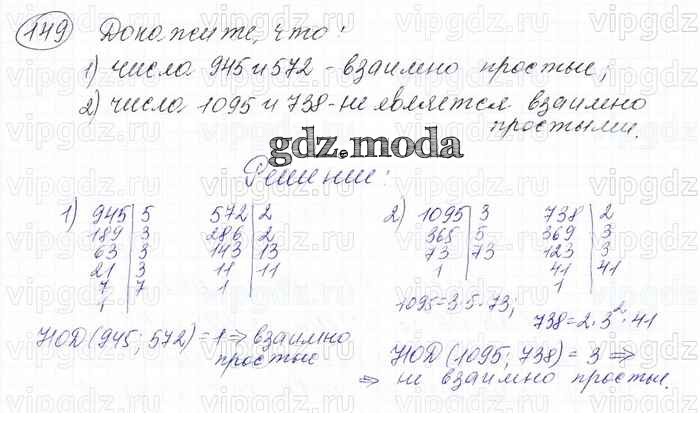 149 Докажите, что:
1) числа 945 и 572 - взаимно простые;
2) числа 1095 и 738 - не является взаимно
простыми.
gdz.moda
Решение:
1) 945 | 5
189 | 3
63 | 3
21 | 3
7 | 7
1
572 | 2
286 | 2
143 | 13
11 | 11
1
НОД (945; 572) = 1 ⇒ взаимно
простые
2) 1095 | 3
365 | 5
73 | 73
1
738 | 2
369 | 3
123 | 3
41 | 41
1
1095 = 3·5·73;
738 = 2·3²·41
НОД (1095; 738) = 3 ⇒
⇒ не взаимно простые.
vipgdz